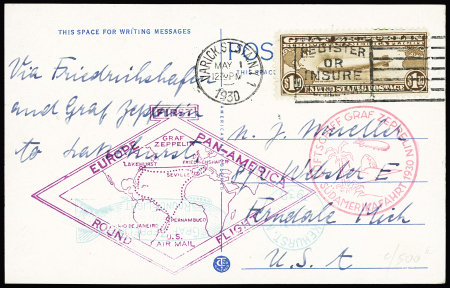 THIS SPACE FOR WRITING MESSAGES
POS
THIS SPACE
VARICK ST. STA. N.Y. 1
MAY 1
12 PM
1930
REGISTER
OR
INSURE
$1.30
$1.30
UNITED STATES POSTAGE
Via Friedrichshafen
and Graf Zeppelin
to Lakehurst
FIRST
EUROPE PAN-AMERICA
GRAF
ZEPPELIN
LAKEHURST
FRIEDRICHSHAFEN
SEVILLE
PERNAMBUCO
RIO DE JANEIRO
U.S.
AIR MAIL
ROUND FLIGHT
LUFTSCHIFF GRAF ZEPPELIN 1930
SÜDAMERIKAFAHRT
N. J. Mueller
Webster E
Ferndale Mich
U.S.A